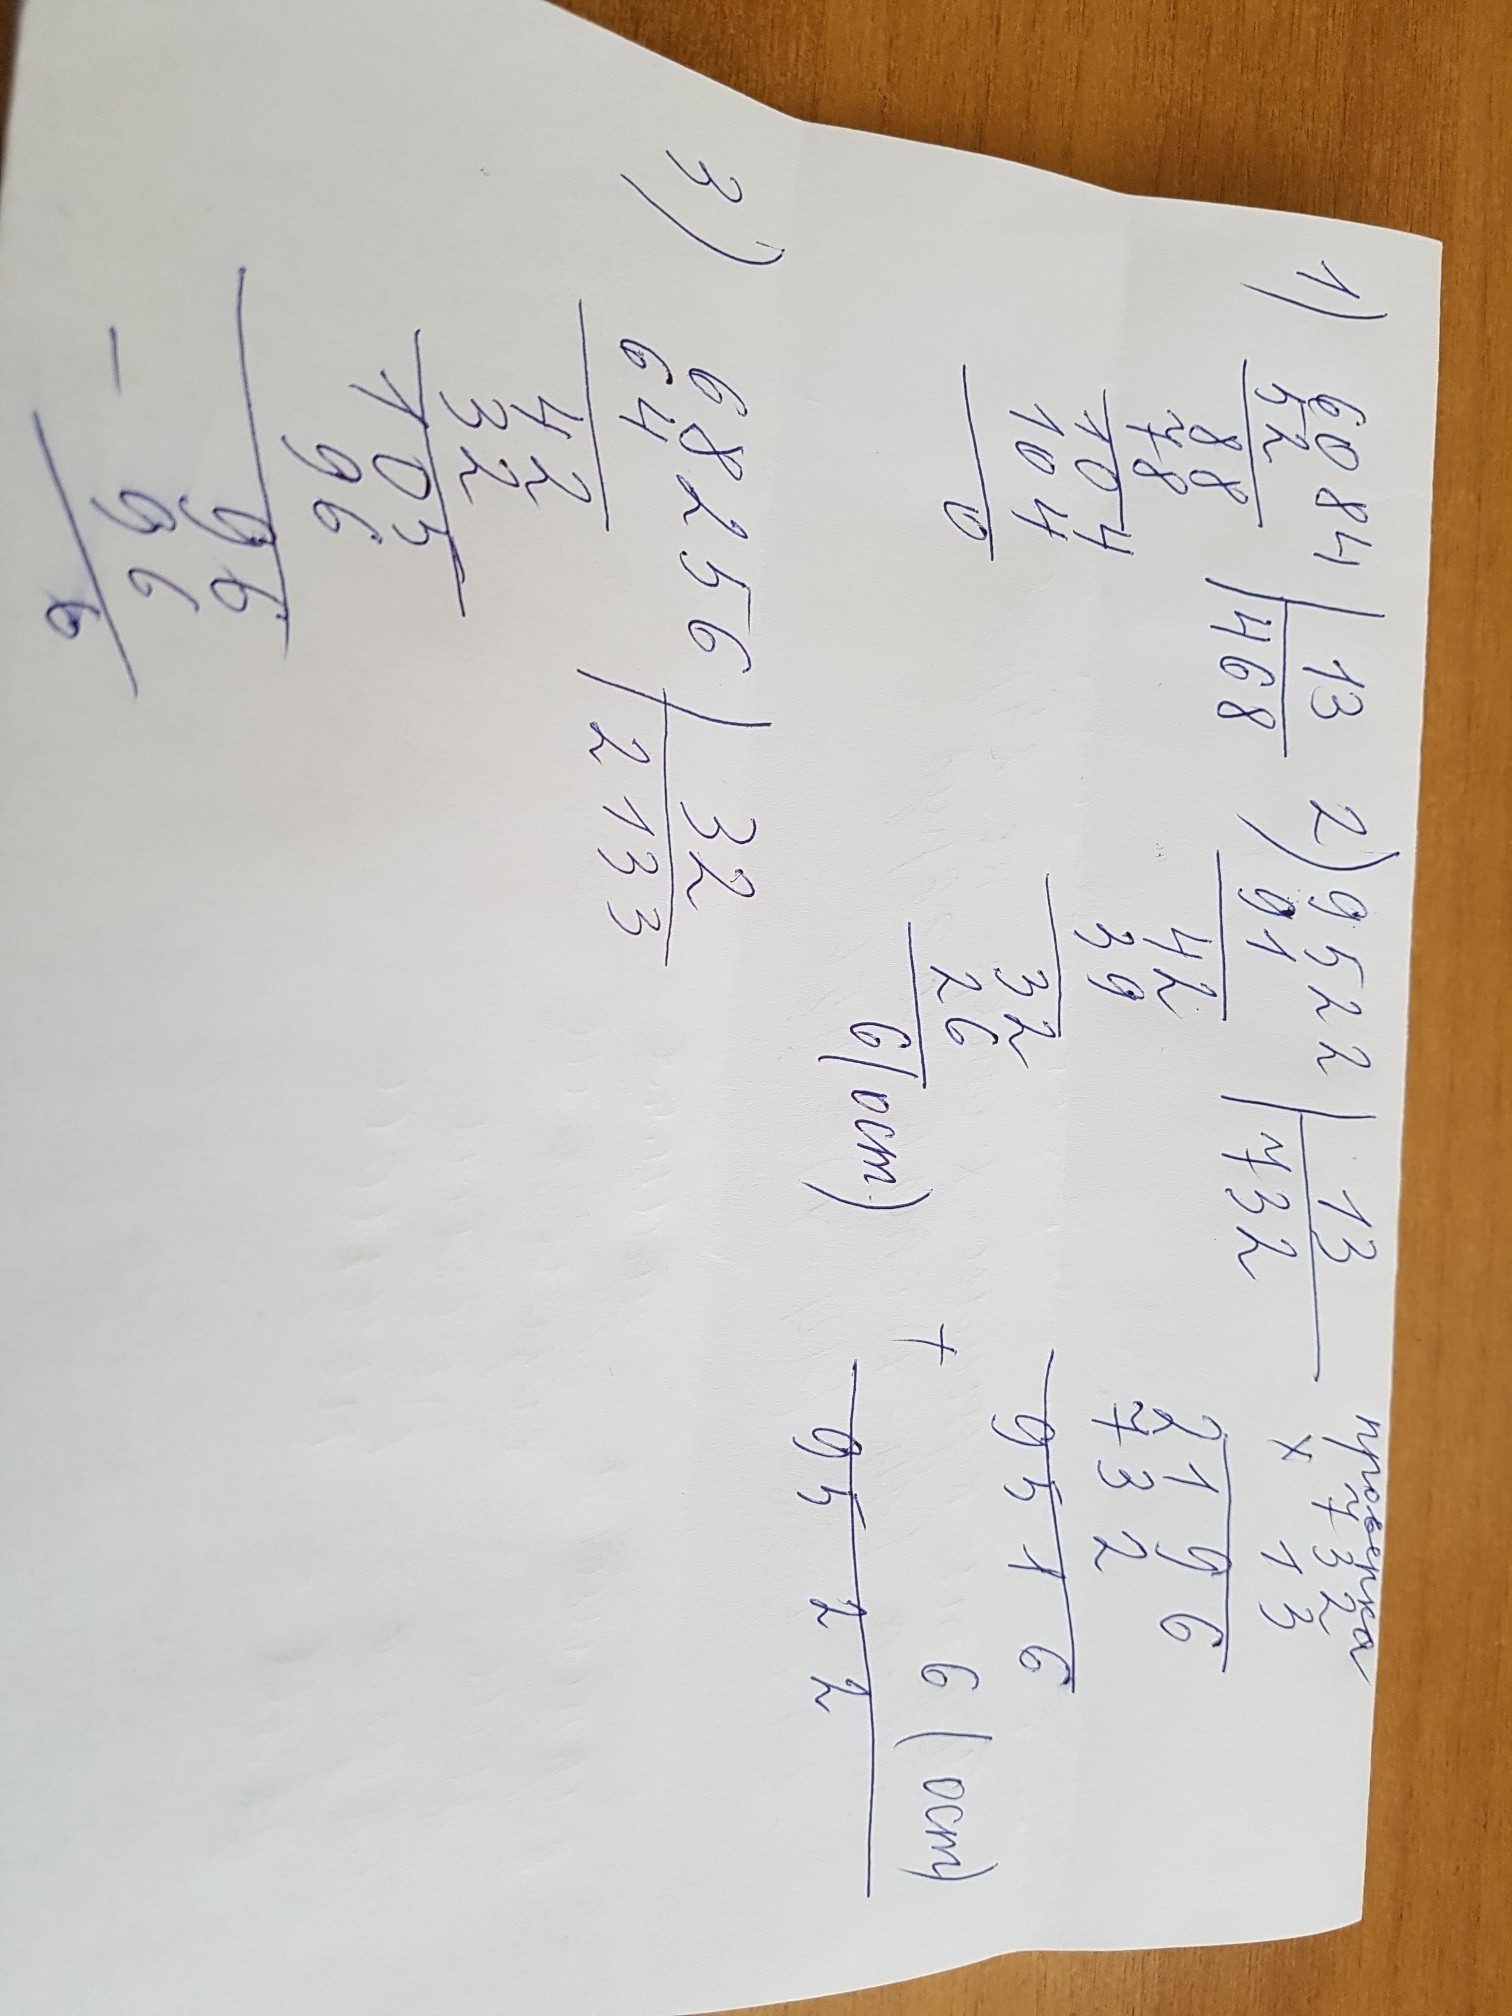 1) 6084 | 13
52
468
88
78
104
104
0
2) 9522 | 13
91
732
42
39
32
26
6 (ост)
проверка
732
x 13
2196
732
9516
+ 6 (ост)
9522
3) 68256 | 32
64
2133
42
32
105
96
96
- 96
0